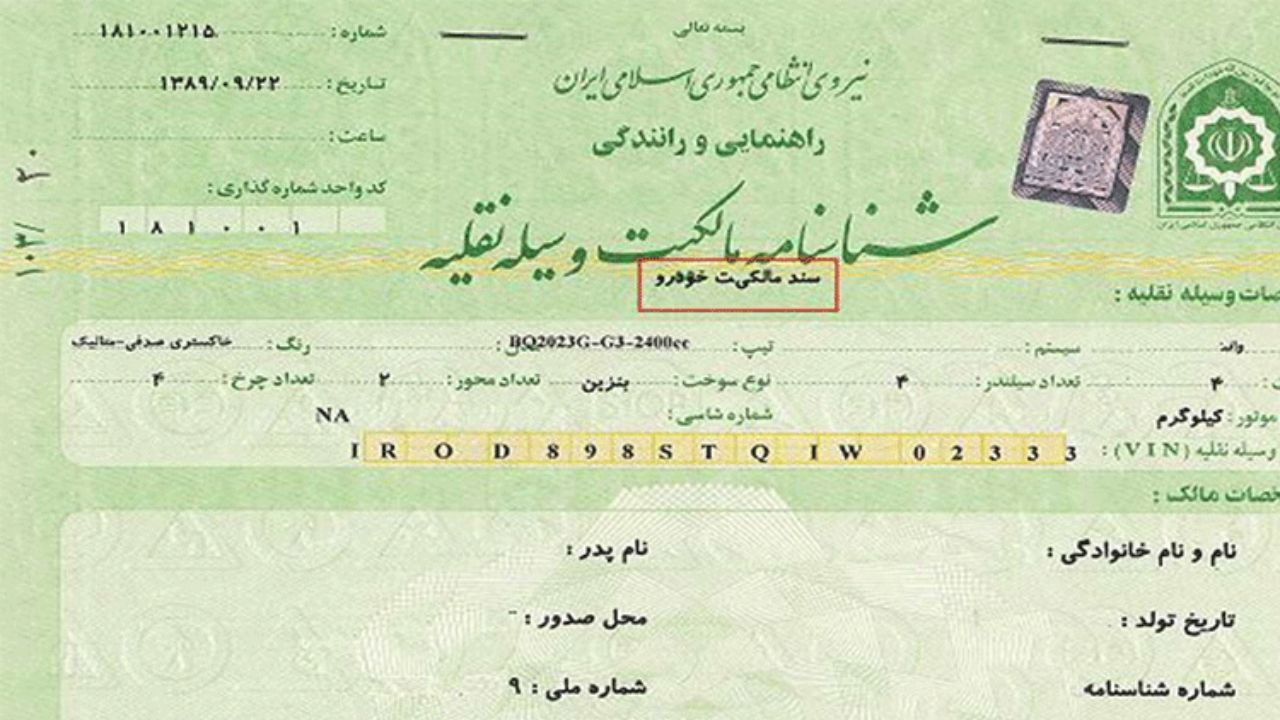 بسمه تعالی
نیروی انتظامی جمهوری اسلامی ایران
راهنمایی و رانندگی
شناسنامه مالکیت وسیله نقلیه
سند مالکیت خودرو
شماره: ۱۸۱۰۰۱۲۱۵
تاریخ: ۱۳۸۹/۰۹/۲۲
ساعت:
کد واحد شماره گذاری:
۱ ۸ ۱ ۰ ۰ ۱
وسیله نقلیه :
سیستم: تیپ: BQ2023G-G3-2400cc رنگ: خاکستری صدفی-متالیک
۴ تعداد سیلندر: ۴ نوع سوخت: بنزین تعداد محور: ۲ تعداد چرخ: ۴
موتور: کیلوگرم شماره شاسی: NA
وسیله نقلیه (VIN): IROD898STQIW02333
مالک :
نام و نام خانوادگی : نام پدر :
تاریخ تولد : محل صدور : -
شماره شناسنامه شماره ملی : ۹